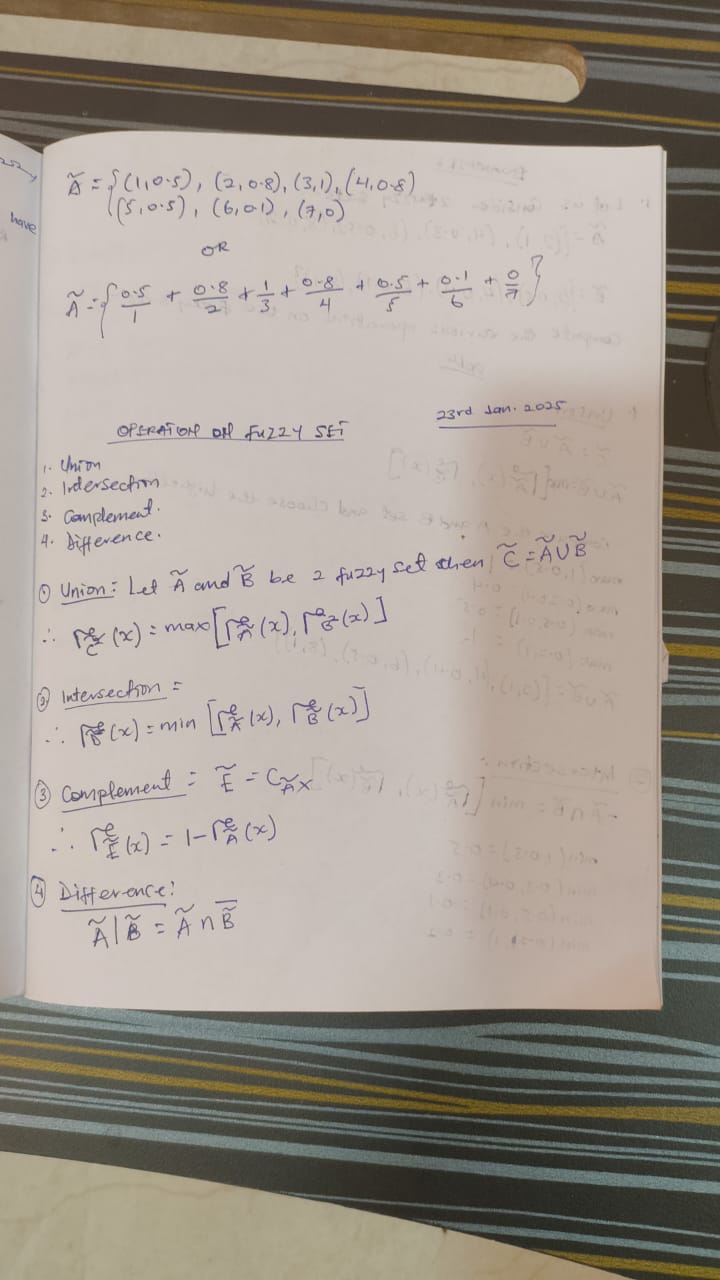 have
Ã = {(1,0.5), (2,0.8), (3,1), (4,0.8)
(5,0.5), (6,0.1), (7,0)
OR
Ã = { 0.5/1 + 0.8/2 + 1/3 + 0.8/4 + 0.5/5 + 0.1/6 + 0/7 }
23rd Jan. 2025
OPERATION ON FUZZY SET
1. Union
2. Intersection
3. Complement.
4. Difference.
① Union: Let Ã and B̃ be 2 fuzzy set then, C̃ = Ã ∪ B̃
∴ (x) = max[ (x), (x)]
② Intersection =
∴ (x) = min [ (x), (x)]
③ Complement: Ẽ = C Ã X
∴ (x) = 1 - (x)
④ Difference:
Ã | B̃ = Ã ∩ B̃̅